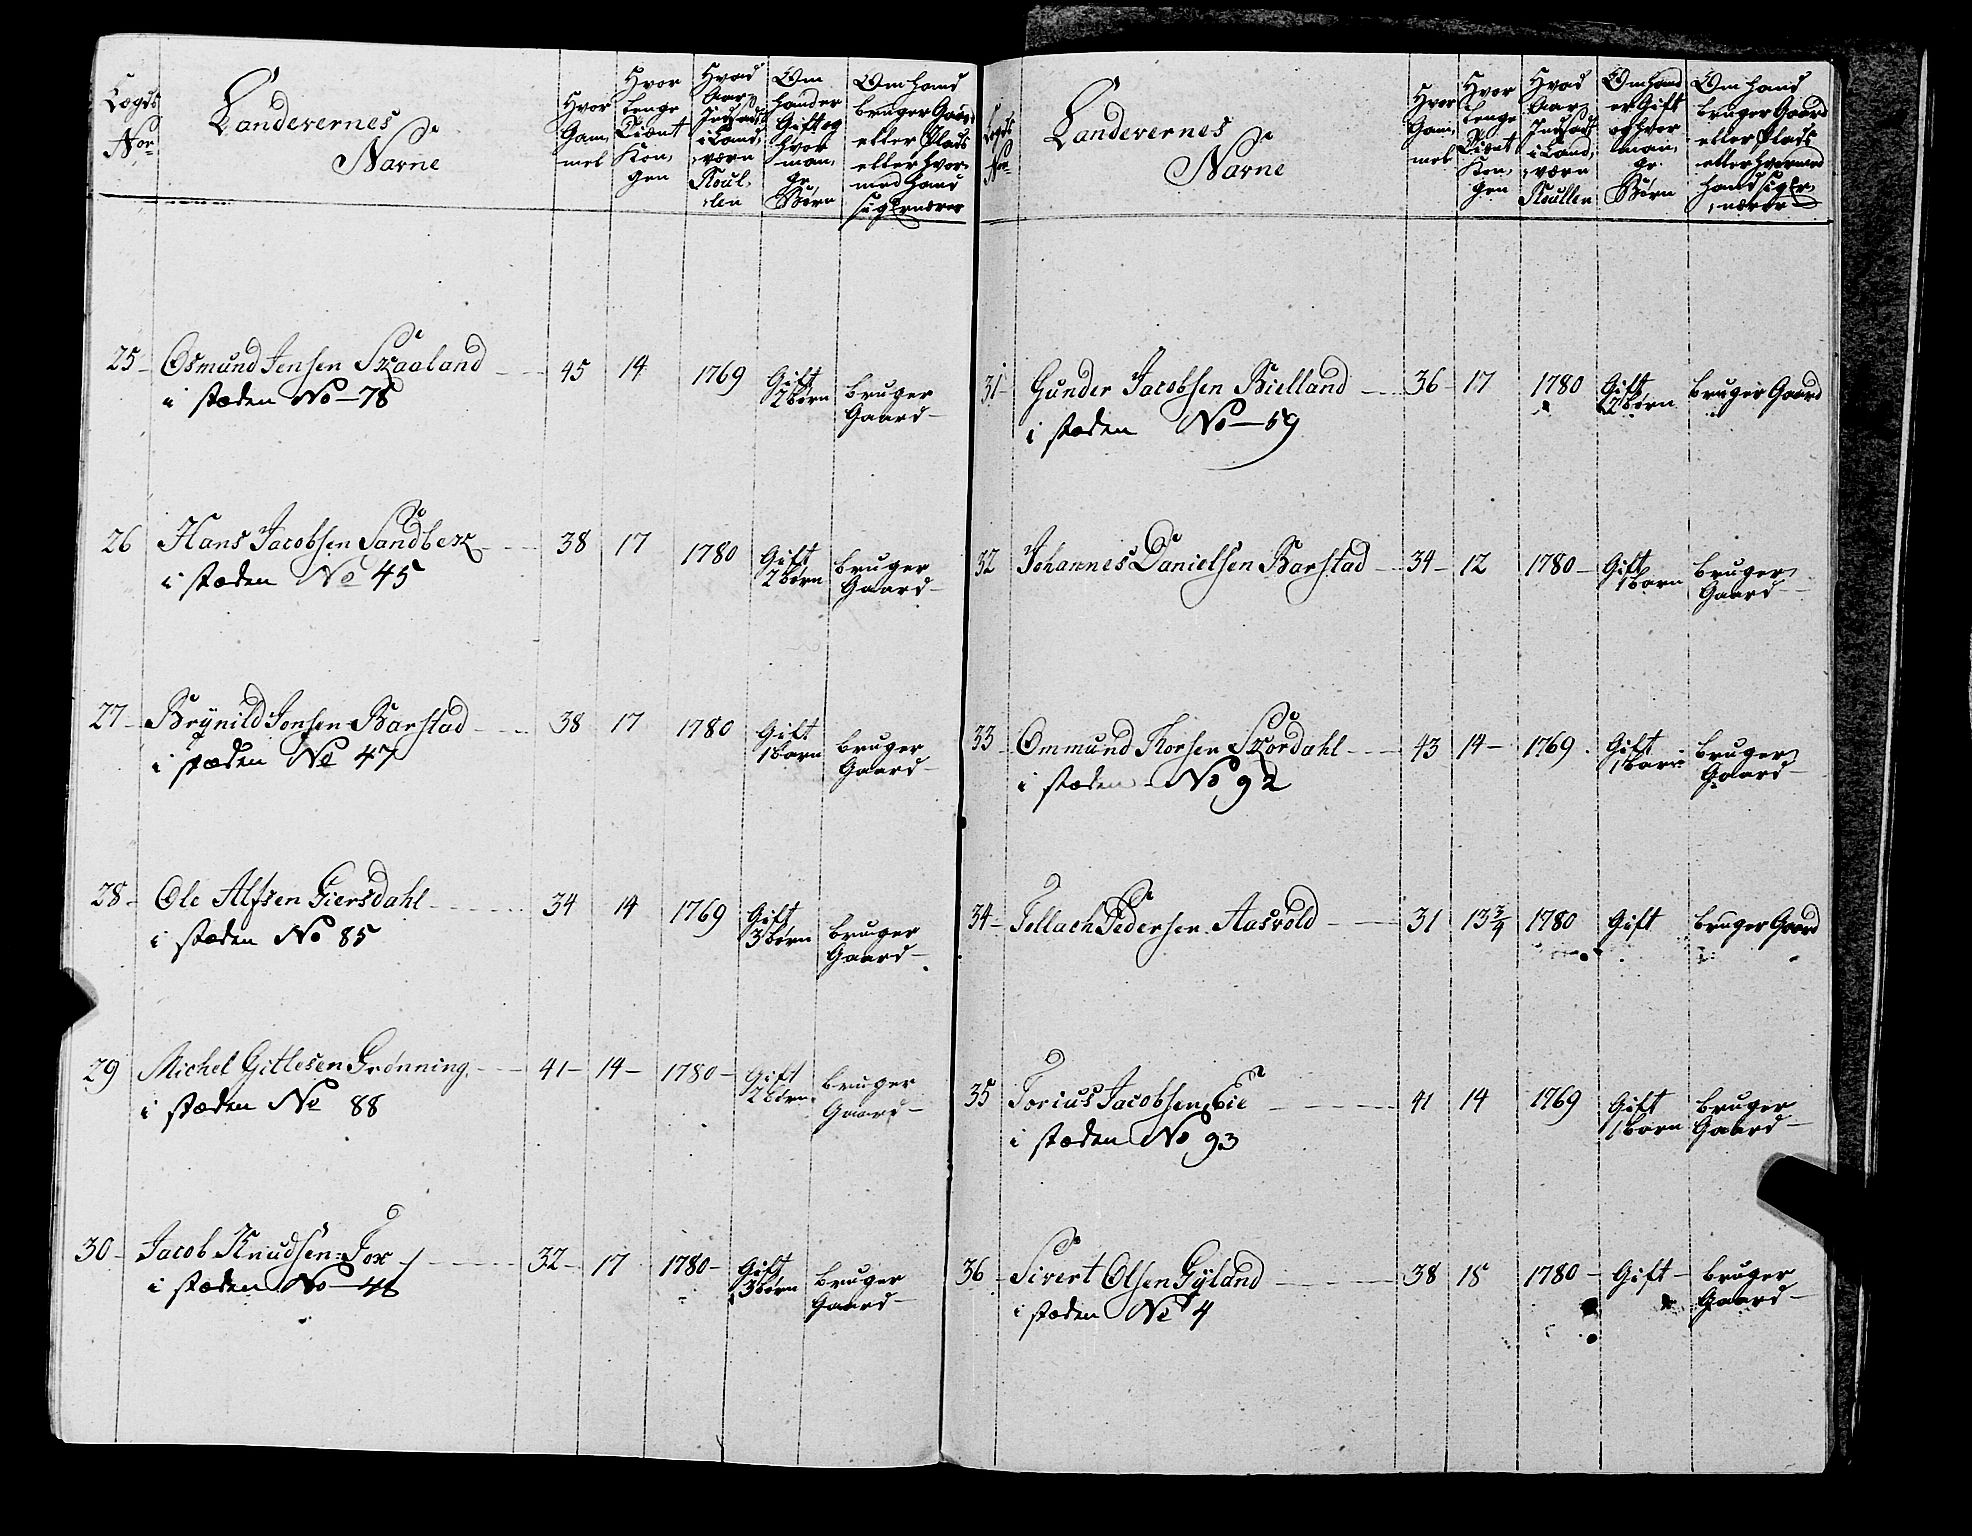 Lægds
No
Landevernes
Navne
Hvor
Gam,
mel
Hvor
lenge
Tiænt
Kon,
gen
Hvad
Aar
Indsadt
i Land,
værn
Roul,
len
Om
hand er
Gift og
hvor
man,
ge
Børn
Om hand
bruger Gaard
eller Plads
eller hvor,
med hand
sig Ernærer
25 Osmund Jensen Skaaland 45 14 1769 Gift 2 børn bruger Gaard
i stæden No 78
26 Hans Jacobsen Sandbek 38 17 1780 Gift 2 børn bruger Gaard
i stæden No 45
27 Brÿnild Jonsen Barstad 38 17 1780 Gift 1 barn bruger Gaard
i stæden No 47
28 Ole Alfsen Giersdahl 34 14 1769 Gift 3 børn bruger Gaard
i stæden No 85
29 Michel Gitlesen Grønning 41 14 1780 Gift 2 børn bruger Gaard
i stæden No 88
30 Jacob Knudsen Fox 32 17 1780 Gift 3 børn bruger Gaard
i stæden No 48
Lægds
No
Landevernes
Navne
Hvor
Gam,
mel
Hvor
lenge
Tiænt
Kon,
gen
Hvad
Aar
Indsadt
i Land,
værn
Roullen
Om hand
er Gift
og hvor
man,
ge
Børn
Om hand
bruger Gaard
eller Plads
eller hvormed
hand sig Er,
nærer
31 Gunder Jacobsen Bielland 36 17 1780 Gift 2 børn bruger Gaard
i stæden No 59
32 Johannes Danielsen Barstad 34 12 1780 Gift 1 barn bruger Gaard
33 Ommund Torsen Skordahl 43 14 1769 Gift 1 barn bruger Gaard
i stæden No 92
34 Tellach Pedersen Aasvold 31 13 3/4 1780 Gift bruger Gaard
35 Torius Jacobsen Eie 41 14 1769 Gift 1 barn bruger Gaard
i stæden No 93
36 Sivert Olsen Gÿland 38 15 1780 Gift bruger Gaard
i stæden No 4